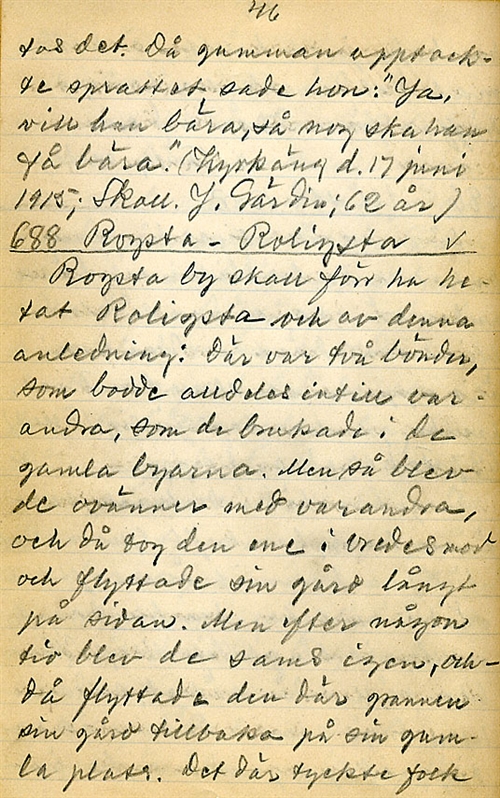 46
tos det. Då gumman upptäck-
te sprattet sade hon: "Ja,
vill han bära, så nog ska han
få bära." (Kyrkäng d. 17 juni
1915; Skoll. J. Gärdin; 62 år)
688 Rogsta - Roligsta ✓
Rogsta by skall förr ha he-
tat Roligsta och av denna
anledning: Där var två bönder,
som bodde alldeles intill var-
andra, som de brukade i de
gamla byarna. Men så blev
de ovänner med varandra,
och då tog den ene i vredesmod
och flyttade sin gård långt
på sidan. Men efter någon
tid blev de sams igen, och
då flyttade den där grannen
sin gård tillbaka på sin gam-
la plats. Det där tyckte folk